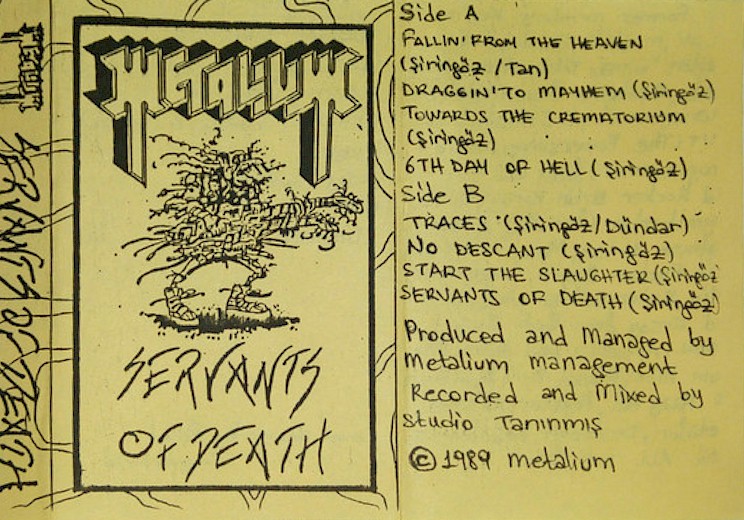 METALIUM
SERVANTS OF DEATH
METALIUM
SERVANTS
OF DEATH
Side A
FALLIN' FROM THE HEAVEN
(Şiringöz / Tan)
DRAGGIN' TO MAYHEM (Şiringöz)
TOWARDS THE CREMATORIUM
(Şiringöz)
6TH DAY OF HELL (Şiringöz)
Side B
TRACES (Şiringöz/Dündar)
NO DESCANT (Şiringöz)
START THE SLAUGHTER (Şiringöz
SERVANTS OF DEATH (Şiringöz)
Produced and Managed by
Metalium management
Recorded and Mixed by
Studio Tanınmış
© 1989 metalium